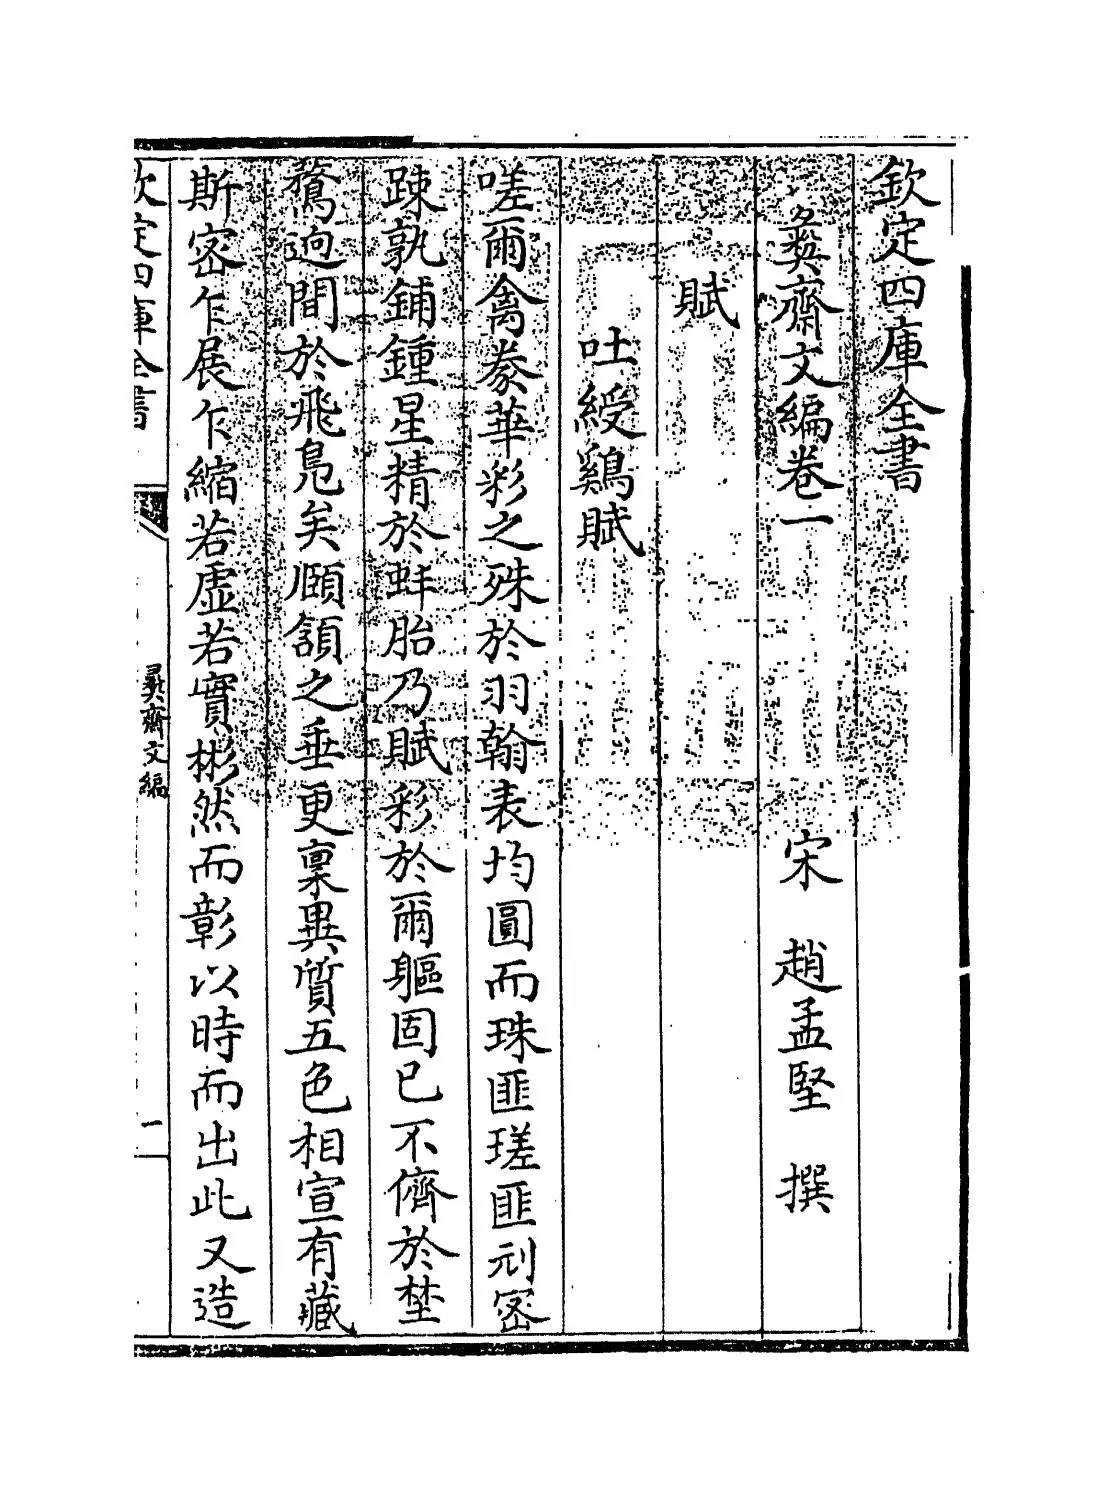 欽定四庫全書
彝齋文編卷一
宋 趙孟堅 撰
賦
吐綬鷄賦
嗟爾禽豢華彩之殊於羽翰表均圓而珠匪瑳匪刓密
踈孰鋪鍾星精於蚌胎乃賦彩於爾軀固已不儕於埜
鶩逈間於飛鳧矣頤頷之垂更稟異質五色相宣有藏
斯密乍展乍縮若虛若實彬然而彰以時而出此又造
欽定四庫全書
彝齋文編
一